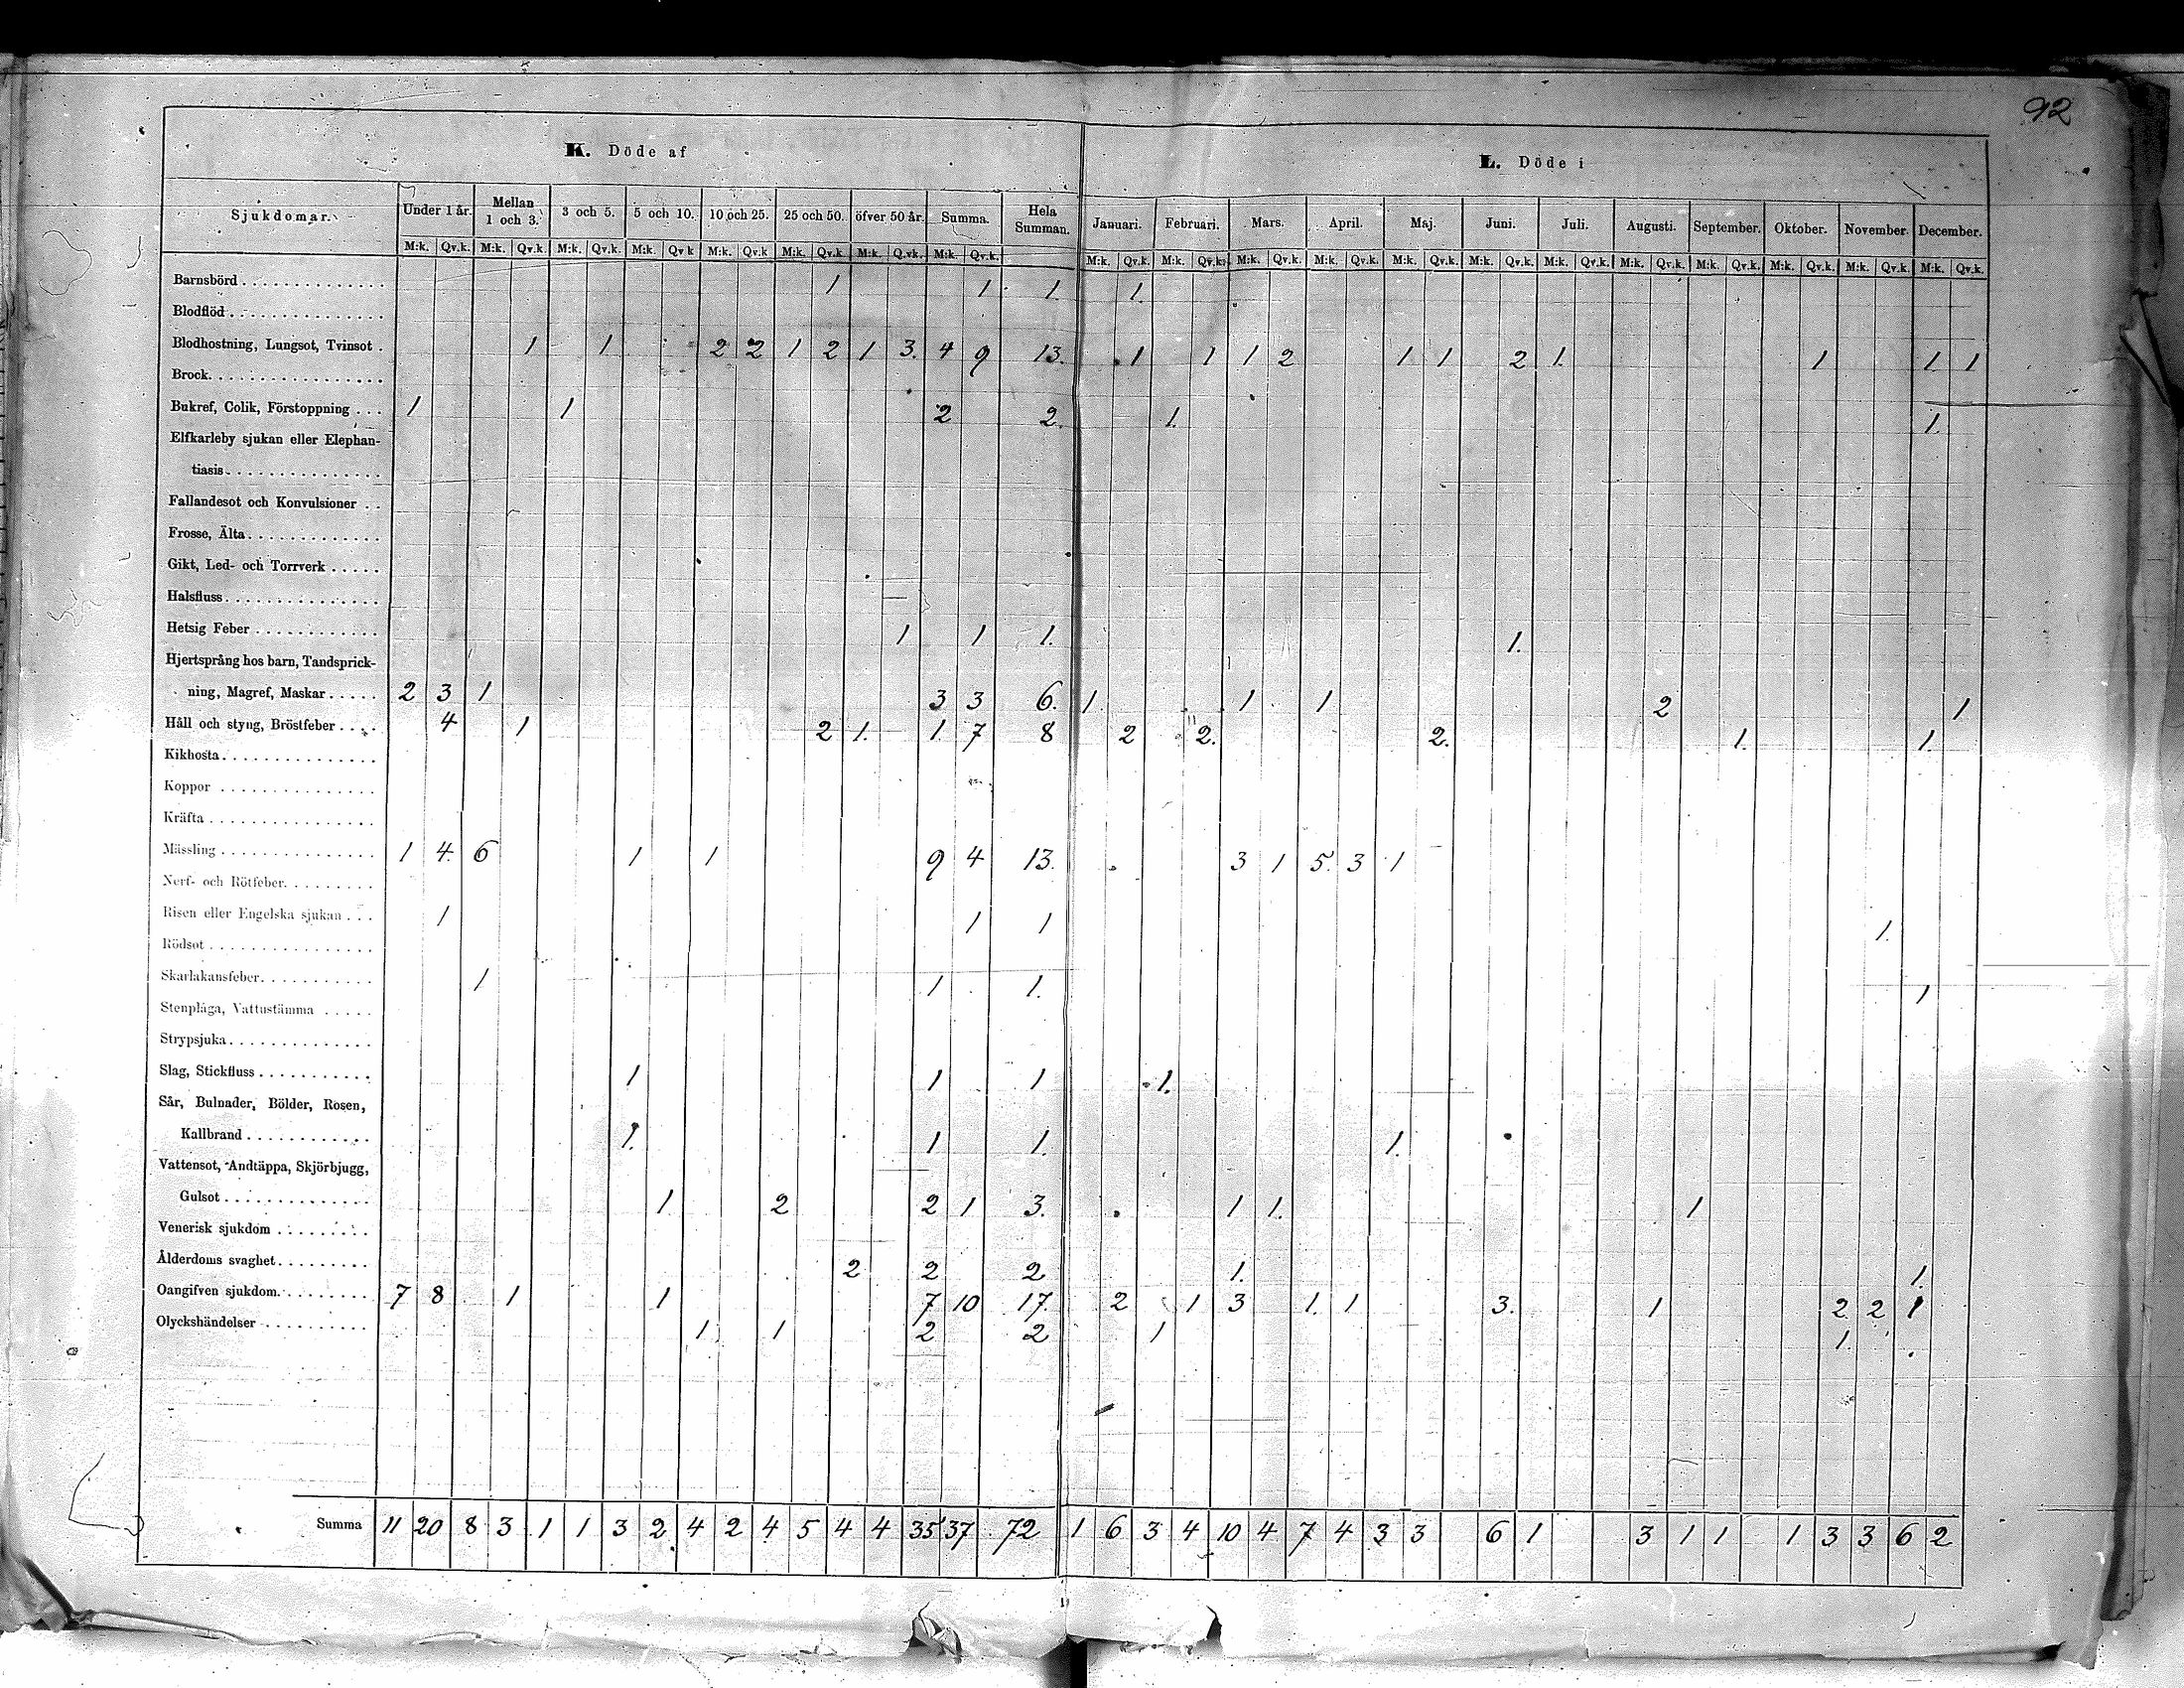 92
K. Döde af
L. Döde i
Sjukdomar. Under 1 år. Mellan 1 och 3. 3 och 5. 5 och 10. 10 och 25. 25 och 50. öfver 50 år. Summa. Hela Summan. Januari. Februari. Mars. April. Maj. Juni. Juli. Augusti. September. Oktober. November. December.
M:k. Qv.k. M:k. Qv.k. M:k. Qv.k. M:k. Qv.k M:k. Qv.k M:k. Qv.k M:k. Q.vk. M:k. Qv.k. M:k. Qv.k. M:k. Qv.k. M:k. Qv.k. M:k. Qv.k. M:k. Qv.k. M:k. Qv.k. M:k. Qv.k. M:k. Qv.k. M:k. Qv.k. M:k. Qv.k. M:k. Qv.k. M:k. Qv.k.
Barnsbörd 1 1 1. 1.
Blodflöd
Blodhostning, Lungsot, Tvinsot 1 1 2 2 1 2 1 3. 4 9 13. 1 1 1 2 1 1 2 1. 1 1 1
Brock
Bukref, Colik, Förstoppning 1 1 2 2. 1. 1.
Elfkarleby sjukan eller Elephan-
tiasis
Fallandesot och Konvulsioner
Frosse, Älta
Gikt, Led- och Torrverk
Halsfluss
Hetsig Feber 1 1 1. 1.
Hjertsprång hos barn, Tandsprick-
ning, Magref, Maskar 2 3 1 3 3 6. 1. 1 1 2 1
Håll och styng, Bröstfeber 4 1 2 1. 1. 7 8 2 2. 2. 1. 1.
Kikhosta
Koppor
Kräfta
Mässling 1 4. 6 1 1 9 4 13. 3 1 5. 3 1
Nerf- och Rötfeber
Risen eller Engelska sjukan 1 1 1 1.
Rödsot
Skarlakansfeber 1 1 1. 1
Stenplåga, Vattustämma
Strypsjuka
Slag, Stickfluss 1 1 1 1.
Sår, Bulnader, Bölder, Rosen,
Kallbrand 1. 1 1. 1.
Vattensot, Andtäppa, Skjörbjugg,
Gulsot 1 2 2 1 3. 1 1. 1
Venerisk sjukdom
Ålderdoms svaghet 2 2 2 1. 1.
Oangifven sjukdom 7 8 1 1 7 10 17. 2 1 3 1. 1 3. 1 2 2 1
Olyckshändelser 1 1 2 2 1 1.
Summa 11 20 8 3 1 1 3 2 4 2 4 5 4 4 35 37 72 1 6 3 4 10 4 7 4 3 3 6 1 3 1 1 1 3 3 6 2